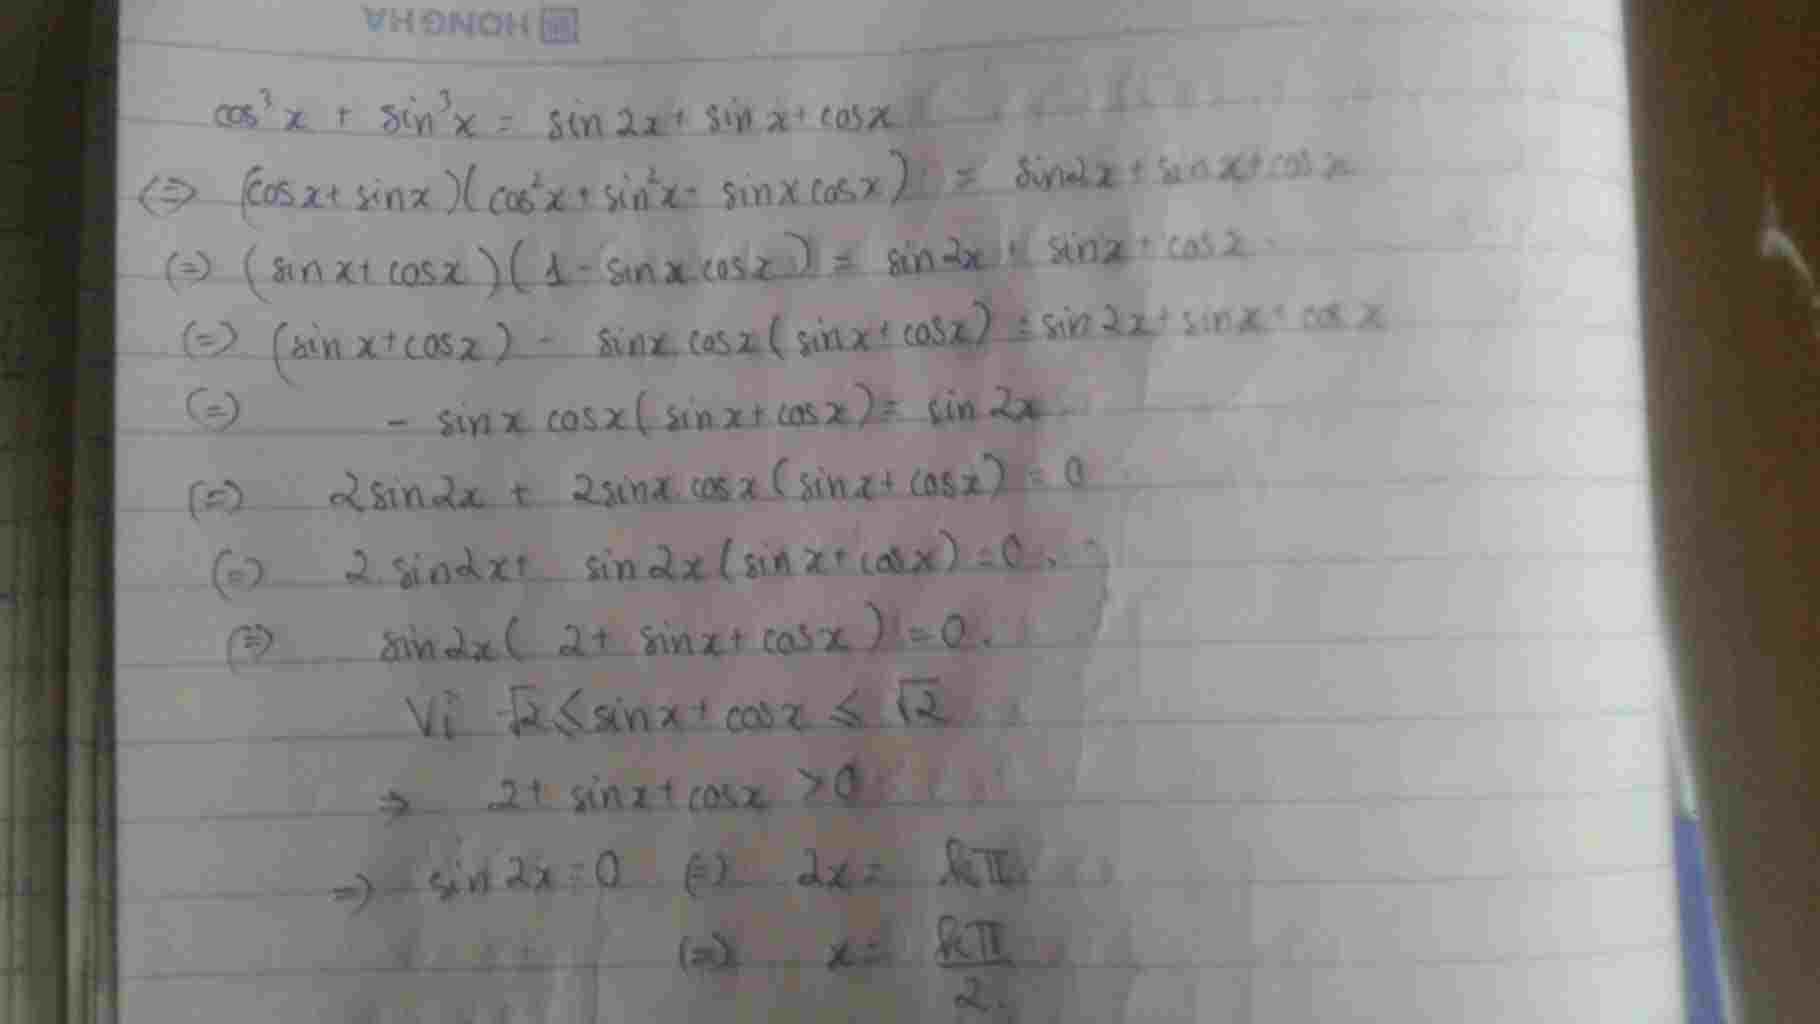 HONG HA
cos³x + sin³x = sin2x + sinx + cosx
(=) (cosx + sinx)(cos²x + sin²x - sinxcosx) = sin2x + sinx + cosx
(=) (sinx + cosx)(1 - sinxcosx) = sin2x + sinx + cosx
(=) (sinx + cosx) - sinx cosx(sinx + cosx) = sin2x + sinx + cosx
(=) - sinx cosx(sinx + cosx) = sin2x
(=) 2sin2x + 2sinx cosx(sinx + cosx) = 0
(=) 2.sin2x + sin2x(sinx + cosx) = 0.
(=) sin2x(2 + sinx + cosx) = 0.
Vì -√2 ≤ sinx + cosx ≤ √2
⇒ 2 + sinx + cosx > 0
=) sin2x = 0 (=) 2x = kπ
(=) x = kπ/2.